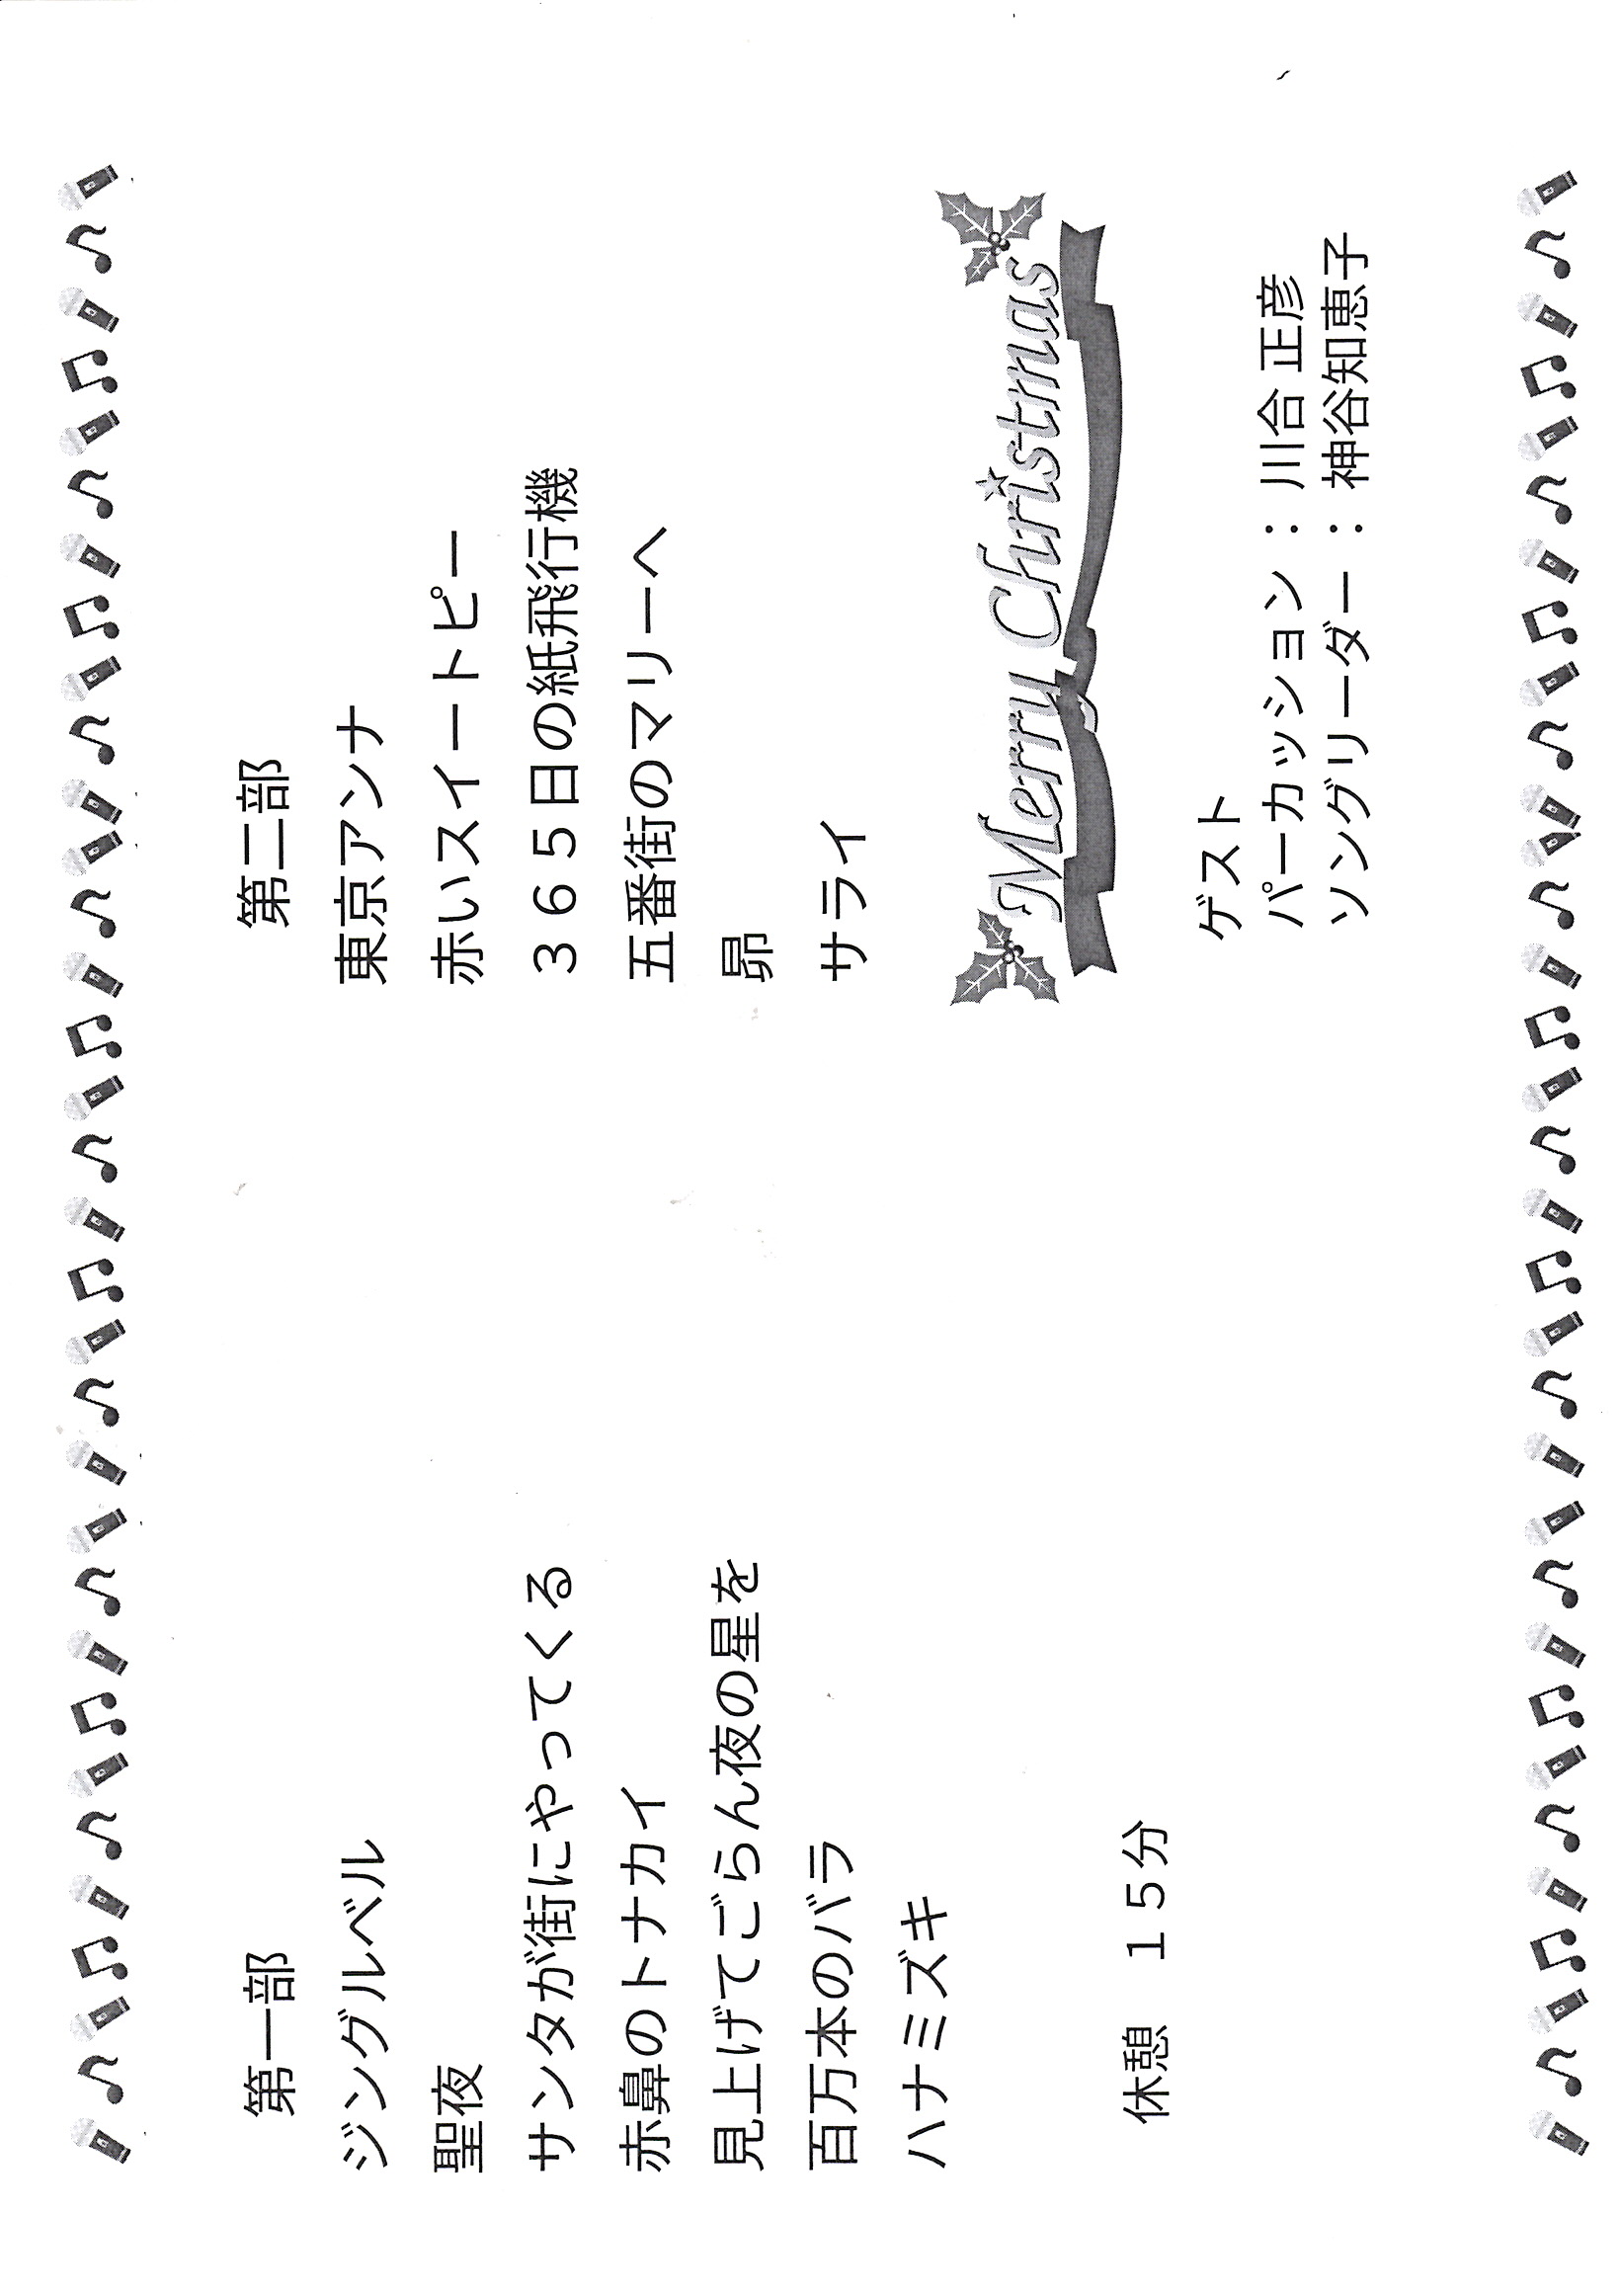 第一部
ジングルベル
聖夜
サンタが街にやってくる
赤鼻のトナカイ
見上げてごらん夜の星を
百万本のバラ
ハナミズキ
休憩　１５分
第二部
東京アンナ
赤いスイートピー
３６５日の紙飛行機
五番街のマリーへ
昴
サライ
Merry Christmas
ゲスト
パーカッション ： 川合 正彦
ソングリーダー ： 神谷知恵子